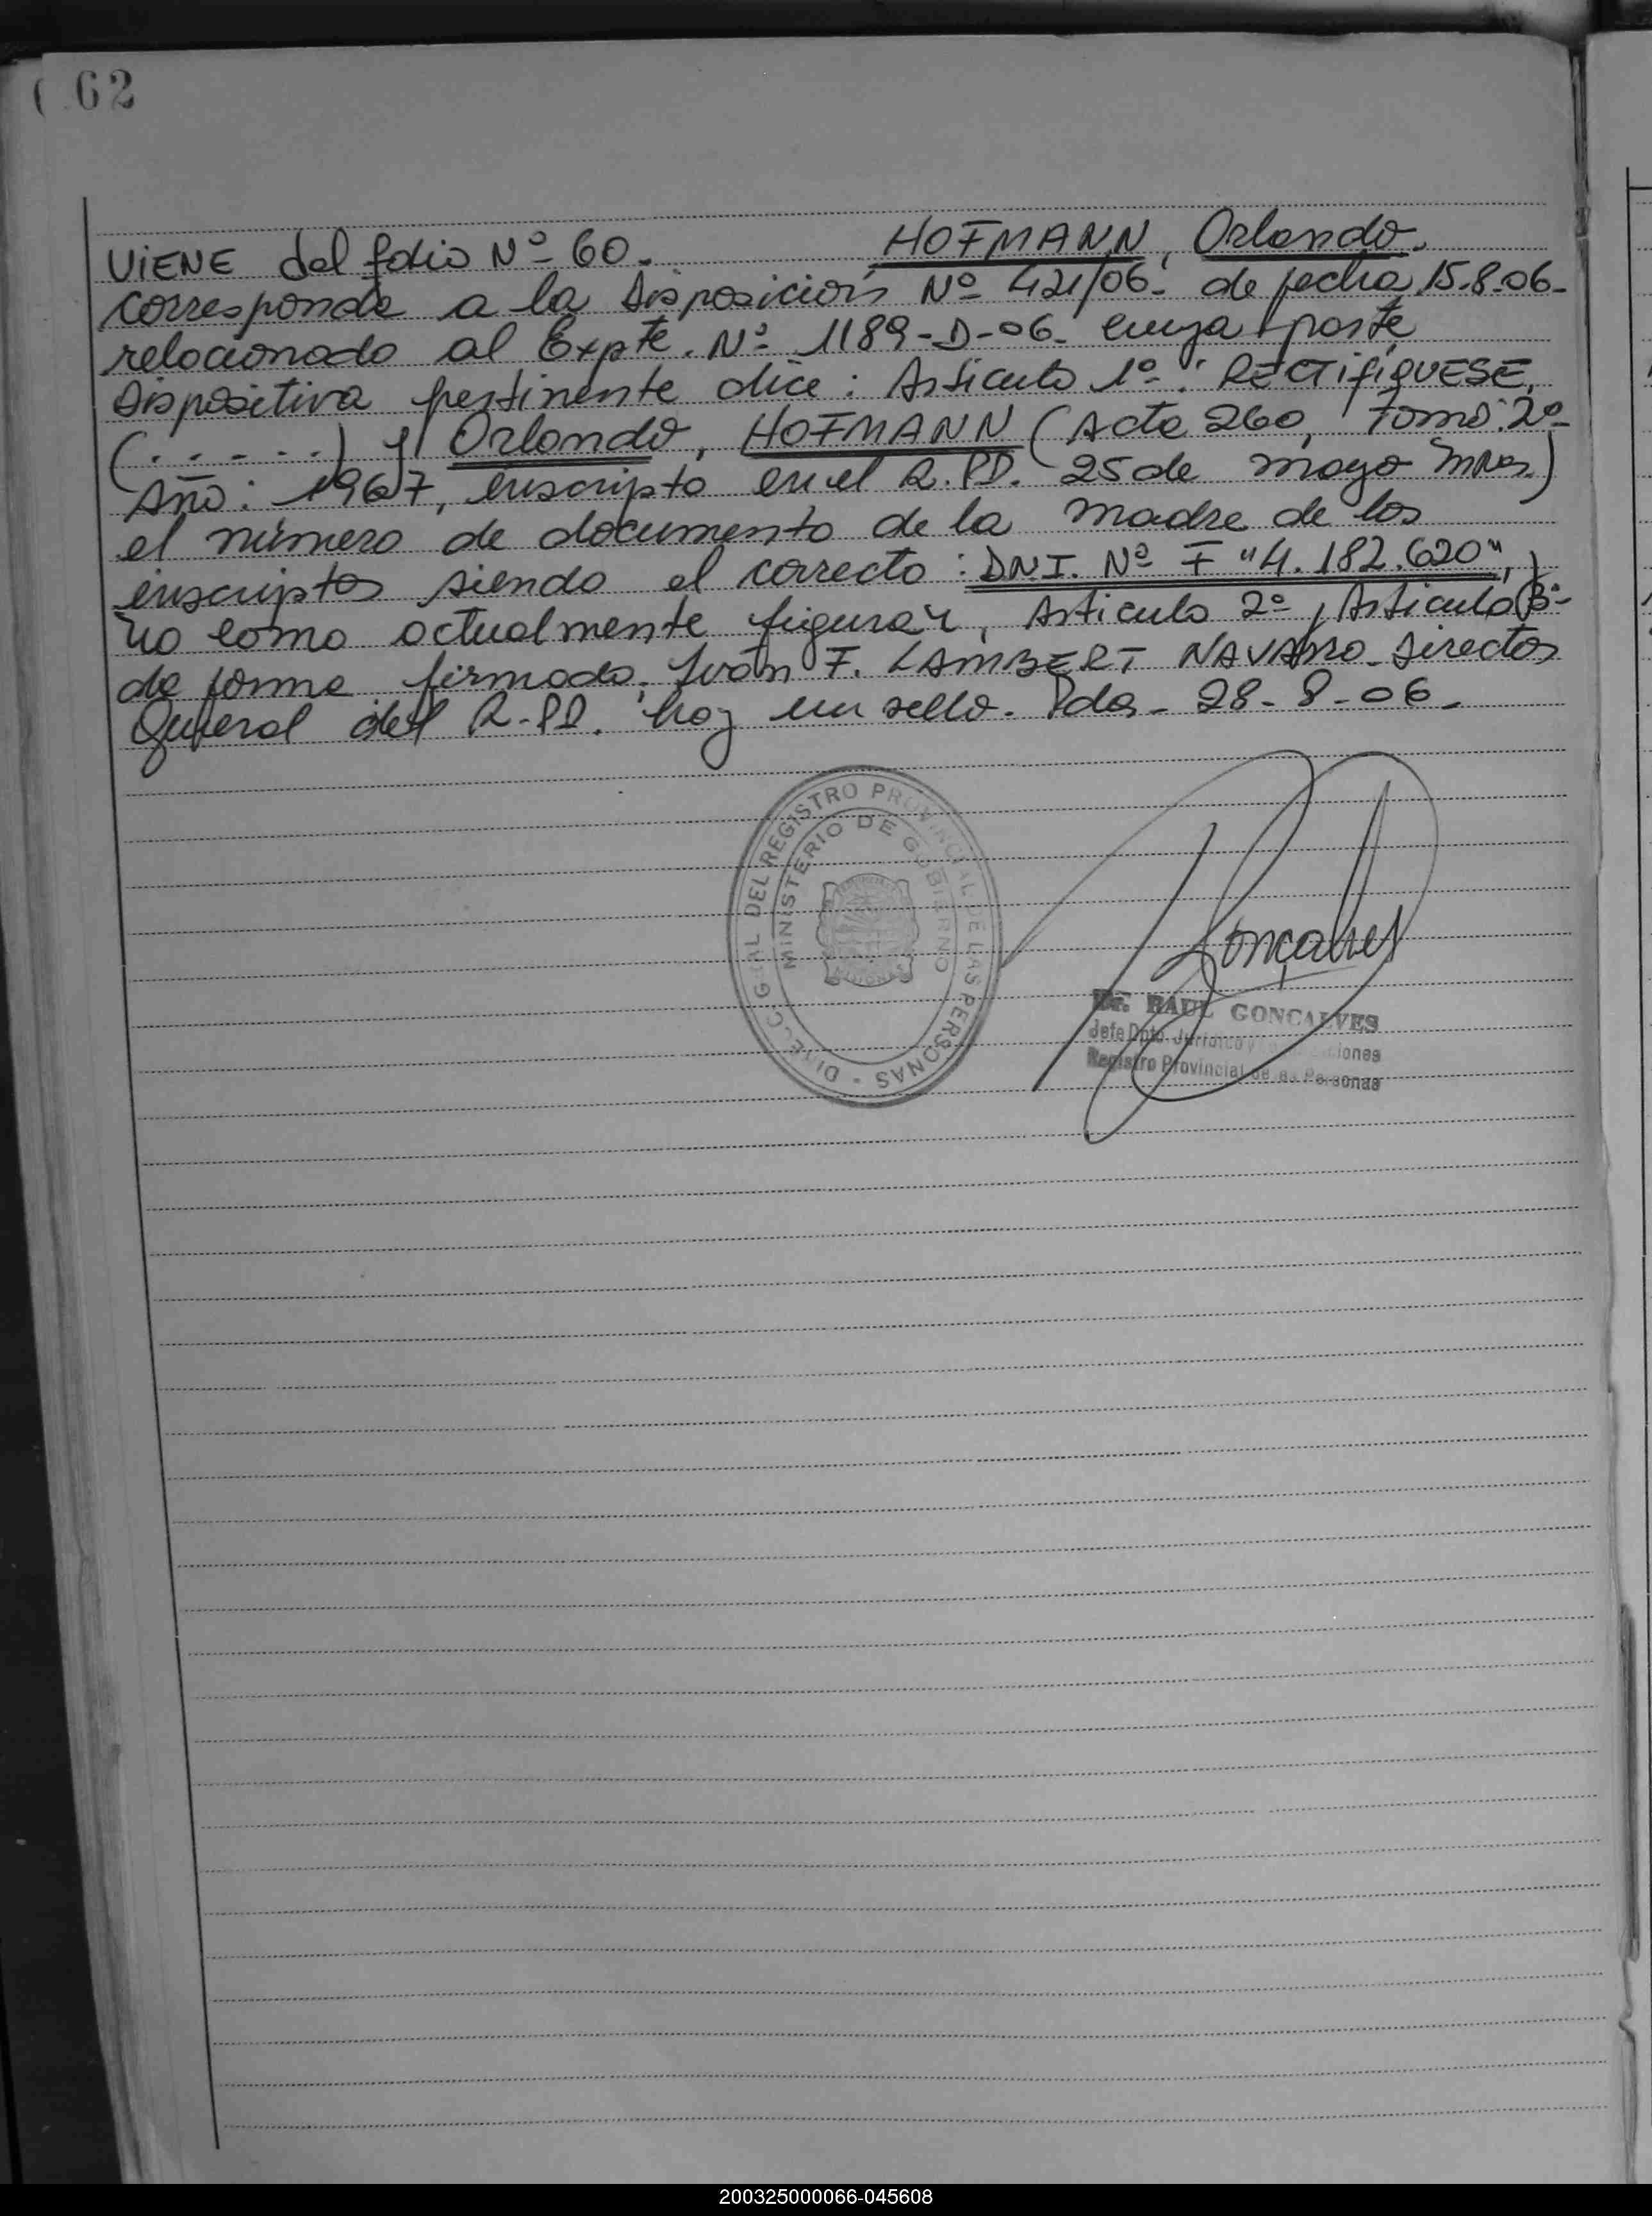 62
ViENE del folio Nº 60. HOFMANN, Orlando.
corresponde a la Disposición Nº 421/06- de fecha 15-8-06-
relacionado al Expte. Nº 1189-D-06- cuya parte
Dispositiva pertinente dice: Artículo 1º: RECTIFÍQUESE,
(. . . . .) y Orlando, HOFMANN (Acta 260, Tomo: 2º-
Año: 1967, inscripto en el R.PP. 25 de mayo Mnes)
el número de documento de la madre de los
inscriptos siendo el correcto: DNI. Nº F "4.182.620",
no como actualmente figura, Artículo 2º, Artículo 3º-
de forma firmado. Iván F. LAMBERT NAVARRO Director
General del R-PP. hay un sello. Pdas- 28-8-06-
DIRECC. GRAL DEL REGISTRO PROVINCIAL DE LAS PERSONAS -
MINISTERIO DE GOBIERNO
Gonçalves
Dr. RAUL GONCALVES
Jefe Dpto. Jurídico y
Registro Provincial de las Personas
200325000066-045608